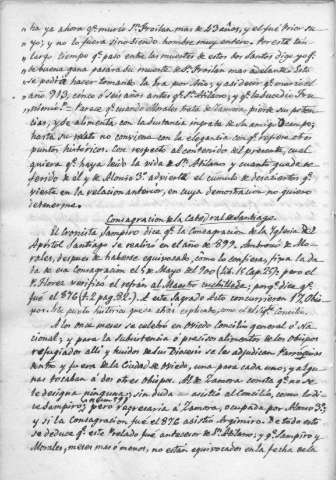 tia ya ahora qe. murio Sn. Froilan mas de 43 años, y el fué Prior su-
yo; y no lo fuera sino siendo hombre muy entero. Por esta tan
largo tiempo qe. pasó entre las muertes de estos dos Santos digo yo qe.
de buena gana pasara su muerte de Sn. Froilan mas adelante. Esto
se podria hacer tomando la Era por Año, y asi decir qe. murio el
año 913, cinco ó seis años antes qe. Sn. Atilano, y qe. le sucedio Fru-
nimio". Parece qe. cuando Morales trata de Zamora, pierde su poten-
cia, y se alimenta con la sustancia ingrata de su amigo Ocampo;
hasta su relato no conviene con la elegancia en qe. refiere otros
puntos históricos. Con respecto al contenido del presente, cual
quiera qe. haya leido la vida de Sn. Atilano y cuanto queda re-
ferido de el y de Alonso 3º. advierte el cumulo de desaciertos qe.
vierte en la relacion anterior, en cuya demostracion no quiero
detenerme.
Consagracion de la Catedral de Santiago.
El Cronista Sampiro dice qe. la Consagracion de la Yglesia del
Apóstol Santiago se realizó en el año de 899. Ambrosio de Mo-
rales, despues de haberse equivocado, como lo confiesa, fija la da-
ta de esa Consagracion el 6 de Mayo del 900 (Lib. 15 Cap. 25); pero el
P. Florez verificó el refrán al Maestro cuchillada; porqe. dice qe.
fué el 876 (t. 2 pag. 82). A este Sagrado Acto concurrieron 17 Obis-
pos. Este punto histórico queda atras esplicado, como el del Concilio.
A los once meses se celebró en Oviedo Concilio general ó Na-
cional; y para la subsistencia ó precisos alimentos de los Obispos
refugiados alli y huidos de sus Diocesis se les adjudican Parroquias
dentro y fuera de la Ciudad de Oviedo, una para cada uno, y algu-
nas tocaban á dos ó tres obispos. Al de Zamora consta qe. no se
le designa ninguna; sin duda asistió al Concilio, como lo di-
ce Sampiro; pero regresaria á Zamora, ocupada por Alonso 3º;
y si la Consagracion fué el 876 asistió Argimiro. De todo esto
se deduce qe. este Prelado fué antecesor de Sn. Atilano; y qe. Sampiro y
Morales, meses mas ó menos, no están equivocados en la fecha de la